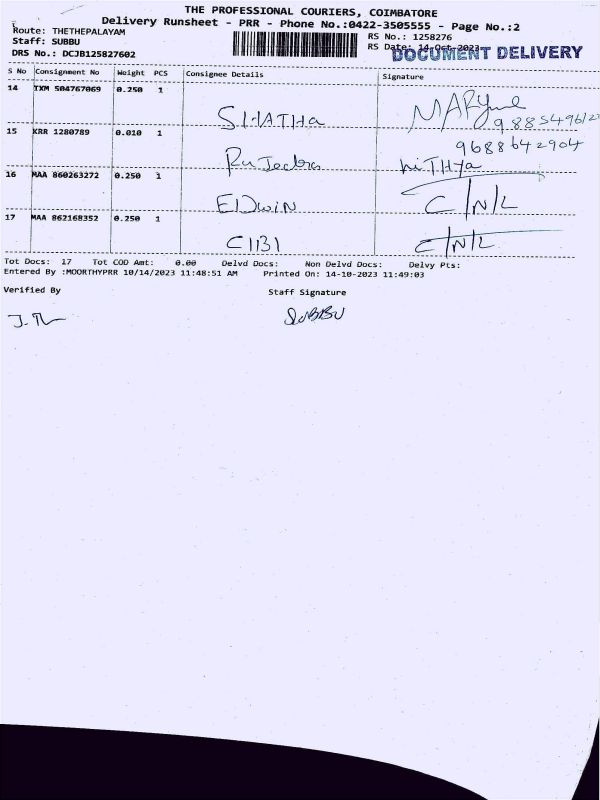 THE PROFESSIONAL COURIERS, COIMBATORE
Delivery Runsheet - PRR - Phone No.:0422-3505555 - Page No.:2
Route: THETHEPALAYAM
Staff: SUBBU
DRS No.: DCJB125827602
RS No.: 1258276
RS Date: 14-Oct-2023
DOCUMENT DELIVERY
S No Consignment No Weight PCS Consignee Details Signature
14 TXM 504767069 0.250 1
15 KRR 1280789 0.010 1
9688642904
niTHYa
16 MAA 860263272 0.250 1
EDwiN C/N/L
17 MAA 862168352 0.250 1
CIBI C/N/L
Tot Docs: 17 Tot COD Amt: 0.00 Delvd Docs: Non Delvd Docs: Delvy Pts:
Entered By :MOORTHYPRR 10/14/2023 11:48:51 AM Printed On: 14-10-2023 11:49:03
Verified By Staff Signature
SUBBU